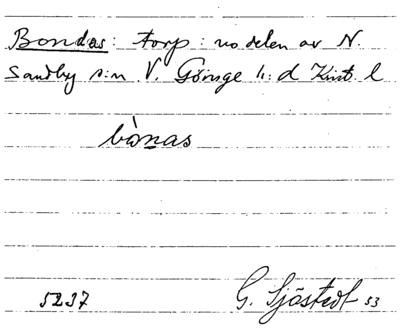 Bondas: torp: no delen av N.
Sandby s:n V. Göinge h:d Krist. l
bònas
5237 G. Sjöstedt 53